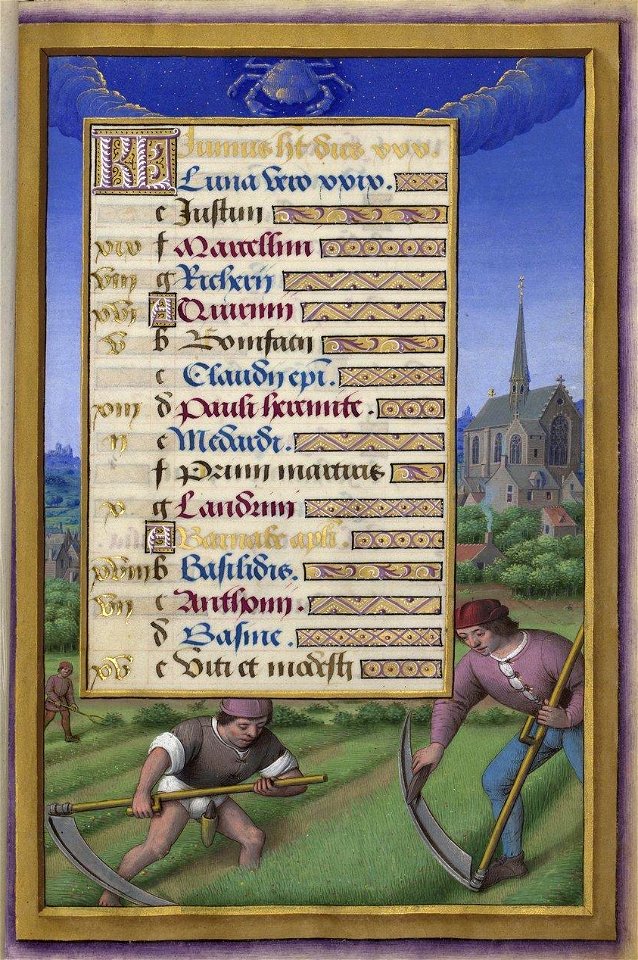 KL Iunius ht dies xxx.
Luna vero xxix.
e Iustini
xix f Marcellini
viii g Richerij
xvi A Quirini
v b Bonifacij
c Claudij epi.
xiii d Pauli heremite.
ii e Medardi.
f Primi martiris
x g Landrini
A Barnabe apli.
xviii b Basilidis.
vii c Anthonij.
d Basine.
xv e Viti et modesti